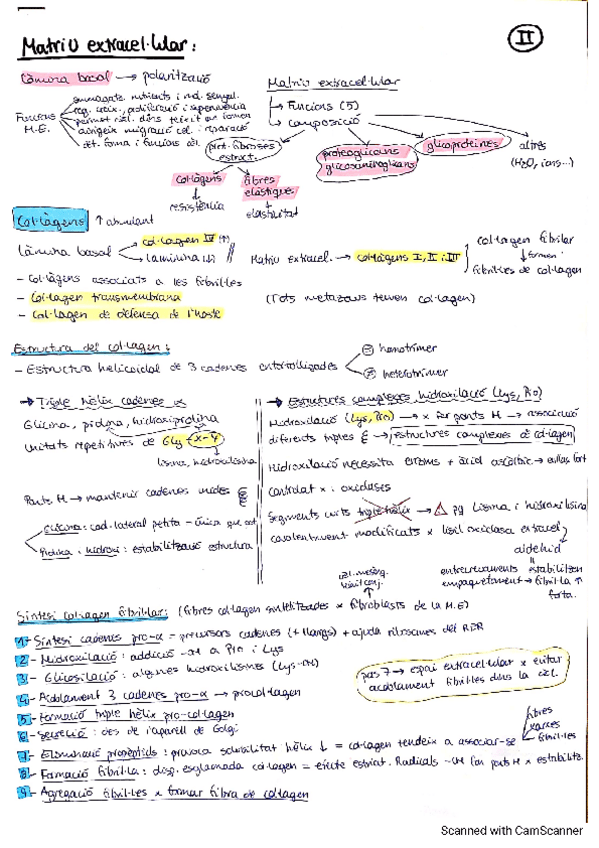 II
Matriu extracel·lular:
Làmina basal → polarització
Matriu extracel·lular
→ Funcions (5)
→ Composició
Funcions M.E.
emmagatz. nutrients i mol. senyal.
reg. creix., proliferació i supervivència
dirigeix migració cèl. i reparació
det. forma i funcions cèl.
prot. fibroses estruct.
proteoglicans
glicosaminoglicans
glicoproteïnes
altres
(H2O, ions...)
col·làgens
resistència
fibres elàstiques
elasticitat
Col·làgens ↑ abundant
Làmina basal
col·lagen IV (↑)
laminina (↓)
Matriu extracel. → col·làgens I, II i III
col·lagen fibrilar
↓ formen
fibril·les de col·lagen
- Col·làgens associats a les fibril·les
- Col·lagen transmembrana
(Tots metazous tenen col·lagen)
- Col·lagen de defensa de l'hoste
Estructura del col·lagen:
- Estructura helicoidal de 3 cadenes entortolligades
= homotrimer
≠ heterotrimer
→ Triple hèlix cadenes α
Glicina, prolina, hidroxiprolina
Unitats repetitives de Gly-X-Y
lisina, hidroxilisina
Ponts H → mantenir cadenes unides
glicina: cad. lateral petita - única que cap
Prolina i hidroxi: estabilització estructura
→ Estructures complexes hidroxilació (Lys, Pro)
Hidroxilació (Lys, Pro) → x fer ponts H → associació
diferents triples → estructures complexes de col·lagen
Hidroxilació necessita enzims + àcid ascòrbic → enllaç fort
controlat x: oxidases
Segments units triple hèlix → ⚠ pq lisina i hidroxilisina
covalentment modificats x lisil oxidasa extracel.
aldehid
entrecreuaments estabilitzen
empaquetament → fibril·la ↑ forta.
cèl. mesènq.
teixit conj.
Síntesi col·lagen fibril·lar: (fibres col·lagen sintetitzades x fibroblasts de la M.E)
1- Síntesi cadenes pro-α = precursors cadenes (+ llargs) + ajuda ribosomes del RER
2- Hidroxilació: addició -OH a Pro i Lys
3- Glicosilació: algunes hidroxilisines (Lys-OH)
4- Acoblament 3 cadenes pro-α → procol·lagen
5- Formació triple hèlix pro-col·lagen
6- Secreció: des de l'aparell de Golgi
7- Eliminació propèptids: provoca solubilitat hèlix ↓ = col·lagen tendeix a associar-se
fibres
xarxes
fibril·les
8- Formació fibril·la: disp. esglaonada col·lagen = efecte estriat. Radicals -OH fan ponts H x estabilitz.
9- Agregació fibril·les x formar fibra de col·lagen
pas 7 → espai extracel·lular x evitar
acoblament fibril·les dins la cèl.
Scanned with CamScanner